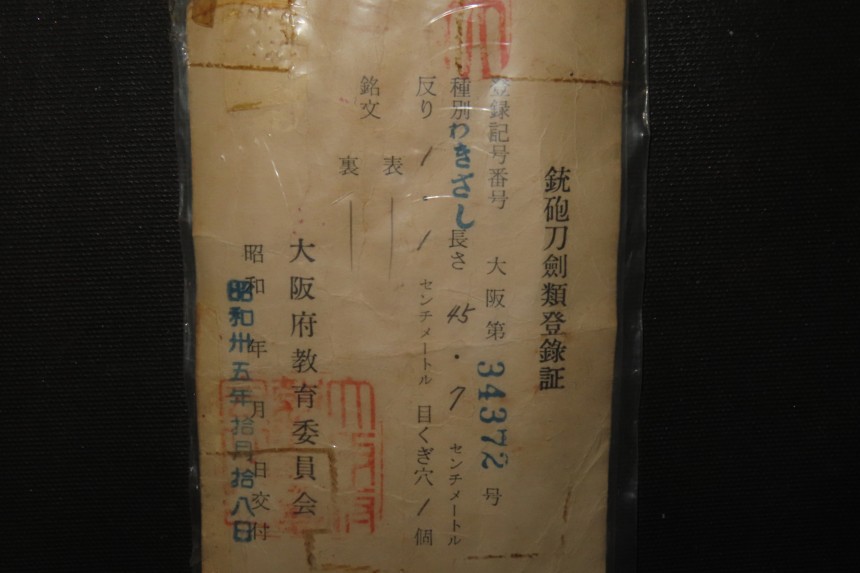 銃砲刀劍類登録証
登録記号番号 大阪第34372号
種別わきざし長さ45.7センチメートル
反り1.1センチメートル 目くぎ穴1個
銘文 表
裏
大阪府教育委員会
昭和 年 月 日交付
昭和卅五年拾月拾八日